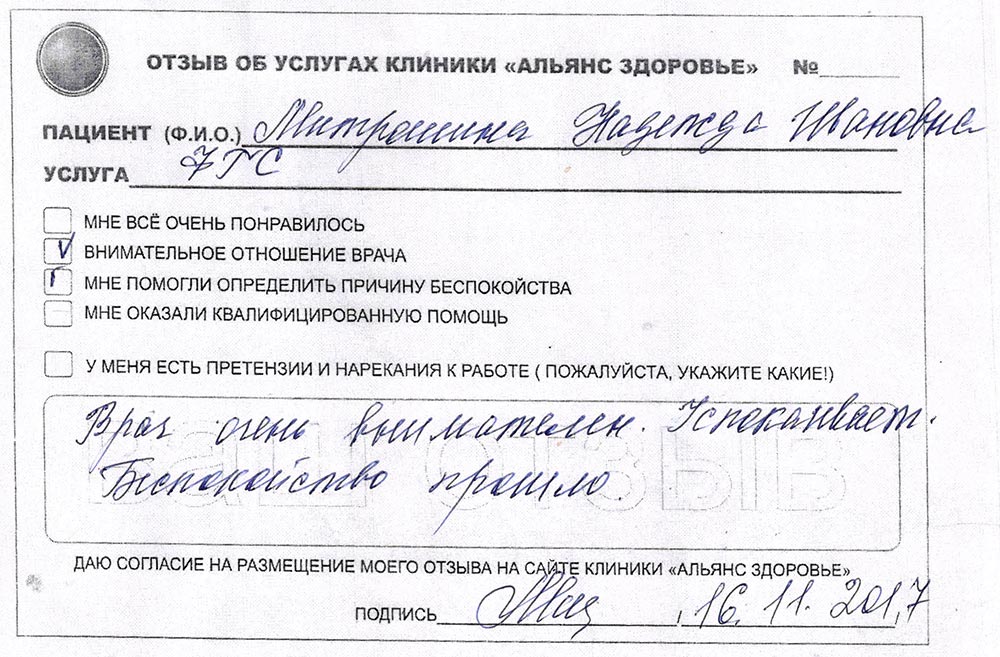 ОТЗЫВ ОБ УСЛУГАХ КЛИНИКИ «АЛЬЯНС ЗДОРОВЬЕ» №
ПАЦИЕНТ (Ф.И.О.) Митрошина Надежда Ивановна
УСЛУГА ФГС
МНЕ ВСЁ ОЧЕНЬ ПОНРАВИЛОСЬ
V ВНИМАТЕЛЬНОЕ ОТНОШЕНИЕ ВРАЧА
МНЕ ПОМОГЛИ ОПРЕДЕЛИТЬ ПРИЧИНУ БЕСПОКОЙСТВА
МНЕ ОКАЗАЛИ КВАЛИФИЦИРОВАННУЮ ПОМОЩЬ
У МЕНЯ ЕСТЬ ПРЕТЕНЗИИ И НАРЕКАНИЯ К РАБОТЕ ( ПОЖАЛУЙСТА, УКАЖИТЕ КАКИЕ!)
Врач очень внимателен. Успокаивает.
Беспокойство прошло
ВАШ ОТЗЫВ
ДАЮ СОГЛАСИЕ НА РАЗМЕЩЕНИЕ МОЕГО ОТЗЫВА НА САЙТЕ КЛИНИКИ «АЛЬЯНС ЗДОРОВЬЕ»
ПОДПИСЬ , 16. 11. 2017